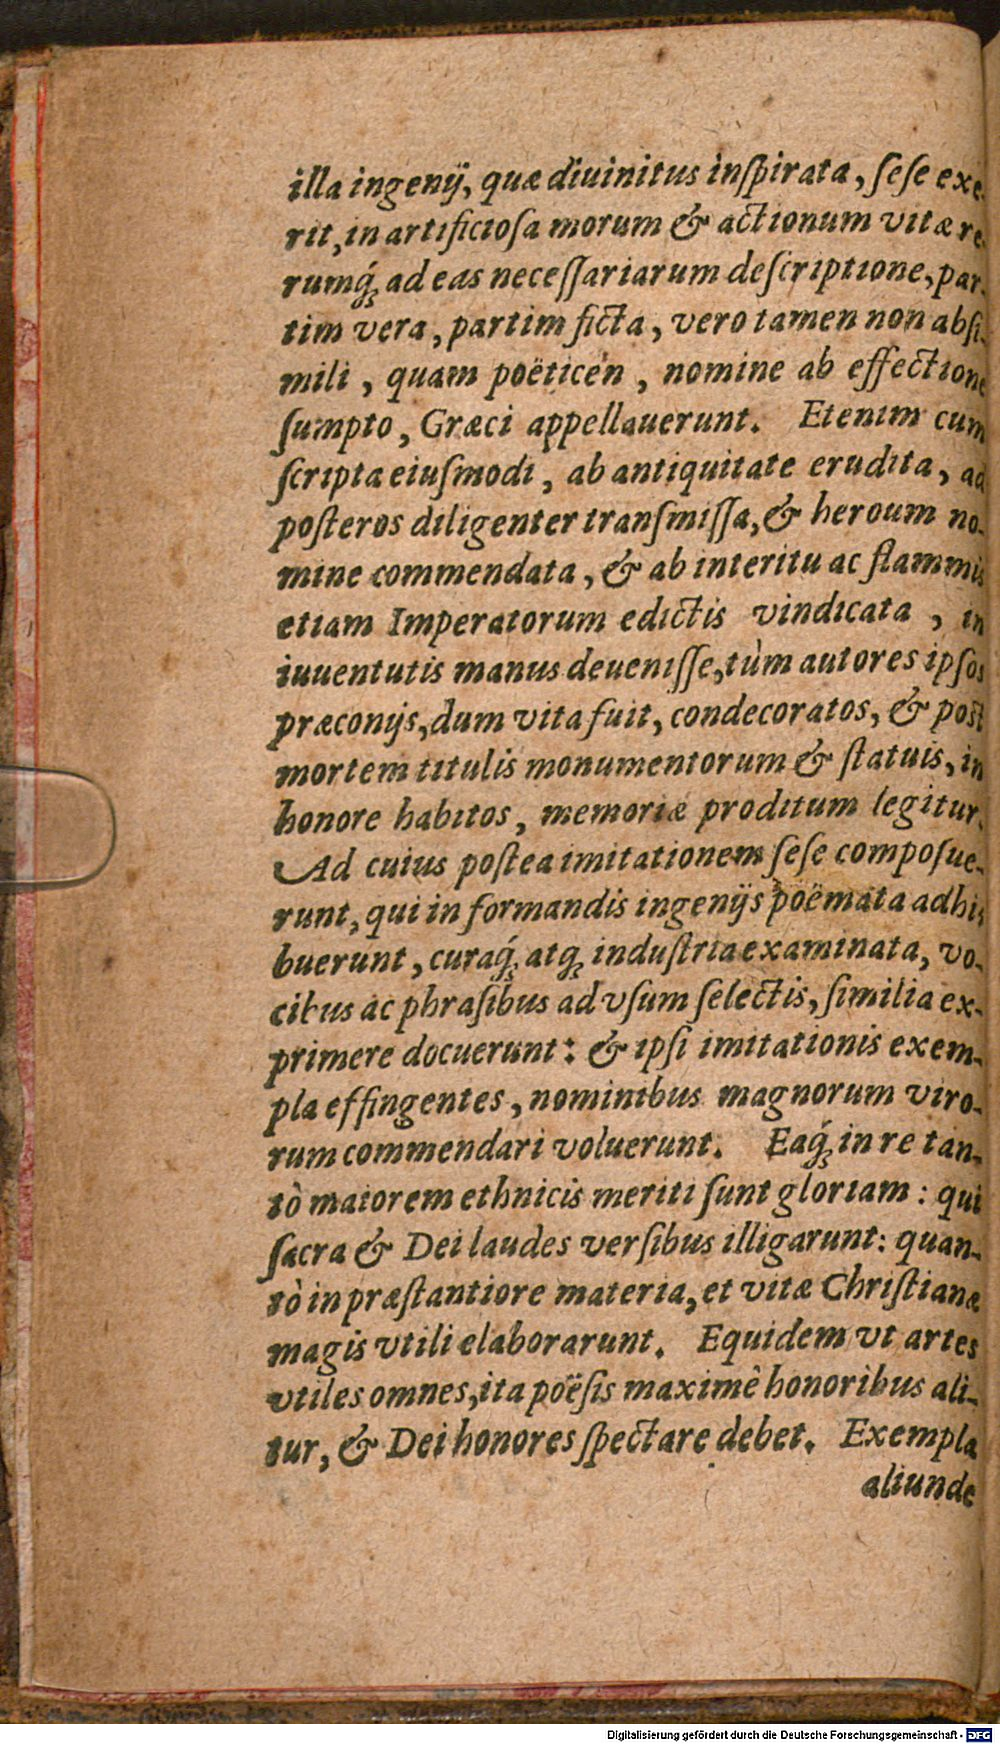 illa ingenij, quæ diuinitus inſpirata, ſeſe exe-
rit, in artificioſa morum & actionum vitæ re-
rumq́ꝫ ad eas neceſſariarum deſcriptione, par-
tim vera, partim ficta, vero tamen non abſi-
mili, quam poëticén, nomine ab effectione
ſumpto, Græci appellauerunt. Etenim cum
ſcripta eiuſmodi, ab antiquitate erudita, ad
poſteros diligenter tranſmiſſa, & heroum no-
mine commendata, & ab interitu ac flammis
etiam Imperatorum edictis vindicata, in
iuuentutis manus deueniſſe, tùm autores ipſos
præconijs, dum vita fuit, condecoratos, & poſt
mortem titulis monumentorum & ſtatuis, in
honore habitos, memoriæ proditum legitur.
Ad cuius poſtea imitationem ſeſe compoſue-
runt, qui in formandis ingenijs poëmata adhi-
buerunt, curaq́ꝫ atqꝫ induſtria examinata, vo-
cibus ac phraſibus ad vſum ſelectis, ſimilia ex-
primere docuerunt: & ipſi imitationis exem-
pla effingentes, nominibus magnorum viro-
rum commendari voluerunt. Eaq́ꝫ in re tan-
tò maiorem ethnicis meriti ſunt gloriam: qui
ſacra & Dei laudes verſibus illigarunt: quan-
tò in præſtantiore materia, et vitæ Chriſtianæ
magis vtili elaborarunt. Equidem vt artes
vtiles omnes, ita poëſis maximè honoribus ali-
tur, & Dei honores ſpectare debet. Exempla
aliunde
Digitalisierung gefördert durch die Deutsche Forschungsgemeinschaft - DFG